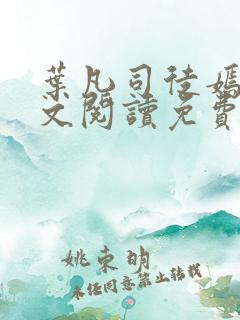 葉凡司徒嫣
文閱讀免費
姚東明
未經同意禁止轉載